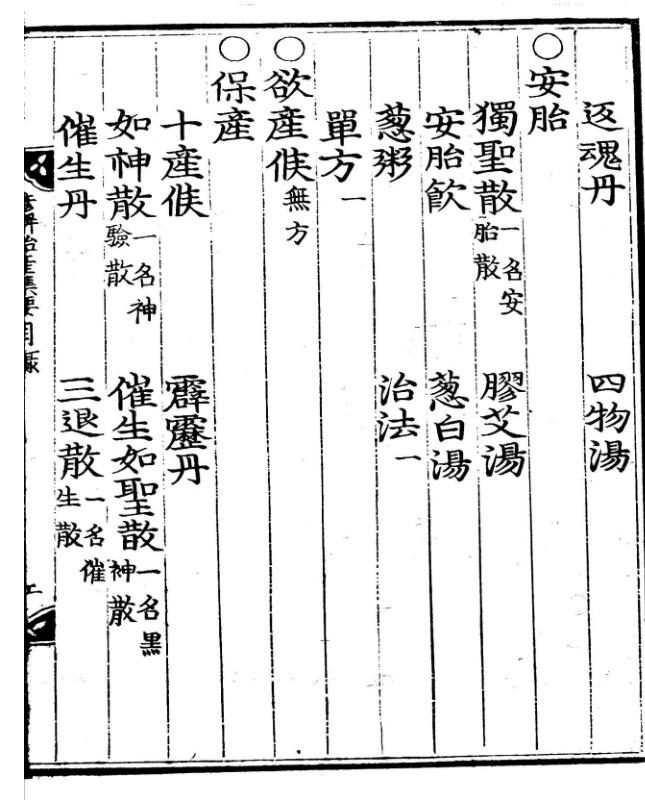 返魂丹 四物湯
○安胎
獨聖散一名安胎散 膠艾湯
安胎飮 葱白湯
葱粥 治法一
單方一
○欲產候無方
○保產
十產候 霹靂丹
如神散一名神驗散 催生如聖散一名黑神散
催生丹 三退散一名催生散
諺解胎產集要目錄